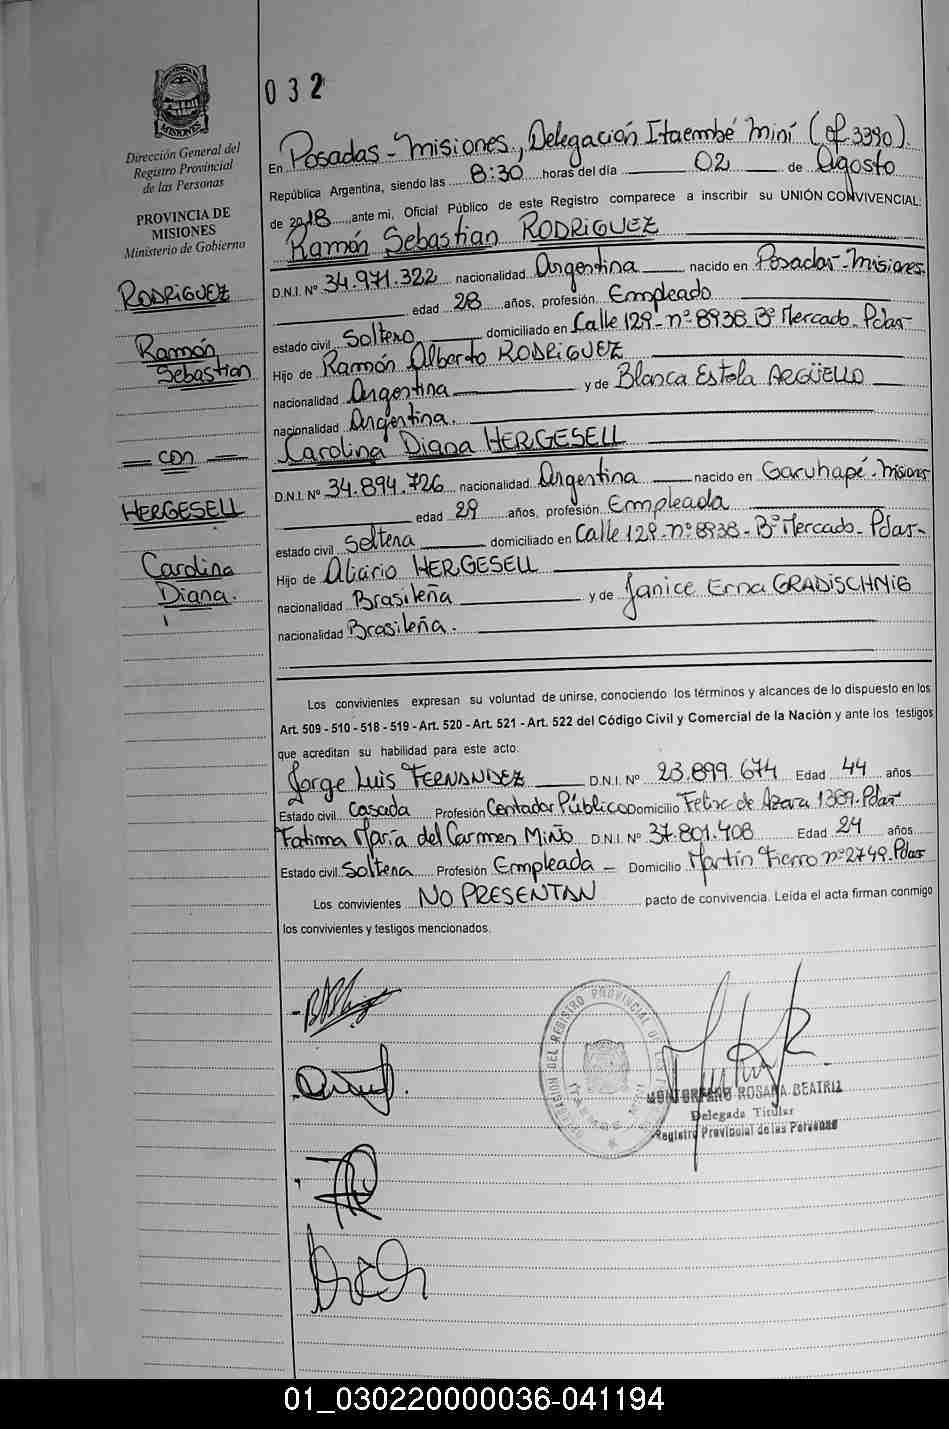 032
Dirección General del
Registro Provincial
de las Personas
PROVINCIA DE
MISIONES
Ministerio de Gobierno
RODRIGUEZ
Ramón
Sebastian
con
HERGESELL
Carolina
Diana.
En Posadas - Misiones, Delegación Itaembé Miní (of. 3390).
República Argentina, siendo las 8:30 horas del día 02 de Agosto
de 2018, ante mi, Oficial Público de este Registro comparece a inscribir su UNIÓN CONVIVENCIAL:
Ramón Sebastian RODRIGUEZ
D.N.I. Nº 34.971.322 nacionalidad Argentina nacido en Posadas - Misiones.
edad 28 años, profesión Empleado
estado civil Soltero domiciliado en Calle 129 - nº 8938 - Bº Mercado - Pdas -
Hijo de Ramón Alberto RODRIGUEZ
nacionalidad Argentina y de Blanca Estela ARGÜELLO
nacionalidad Argentina.
Carolina Diana HERGESELL
D.N.I. Nº 34.894.726 nacionalidad Argentina nacido en Garuhapé - Misiones
edad 29 años, profesión Empleada
estado civil Soltera domiciliado en Calle 129 - nº 8938 - Bº Mercado - Pdas -
Hijo de HERGESELL
nacionalidad Brasileña y de Janice Erna GRADISCHNIG
nacionalidad Brasileña.
Los convivientes expresan su voluntad de unirse, conociendo los términos y alcances de lo dispuesto en los
Art. 509 - 510 - 518 - 519 - Art. 520 - Art. 521 - Art. 522 del Código Civil y Comercial de la Nación y ante los testigos
que acreditan su habilidad para este acto:
Jorge Luis FERNANDEZ D.N.I. Nº 23.899.674 Edad 44 años
Estado civil Casada Profesión Contador Público Domicilio Felix de Azara 1389 - Pdas -
Fatima María del Carmen Miño D.N.I. Nº 37.801.408 Edad 24 años
Estado civil Soltera Profesión Empleada - Domicilio Martín Fierro nº 2749 - Pdas
Los convivientes NO PRESENTAN pacto de convivencia. Leída el acta firman conmigo
los convivientes y testigos mencionados.
ROSANA BEATRIZ
Delegada Titular
Registro Provincial de las Personas
01_030220000036-041194